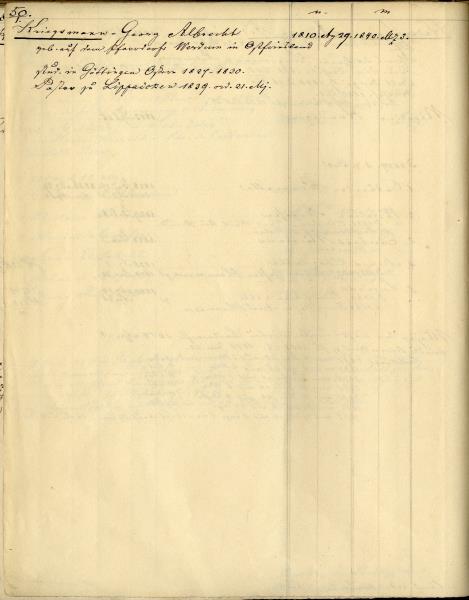 50. n. m
Kriegsmann - Georg Albrecht 1810. Ag 29. 1840. Mz 3.
geb. auf dem Pfarrdorfe Werdum in Ostfriesland
stud. in Göttingen Ostern 1827-1830.
Pastor zu 1839. ord. 21. Mj.